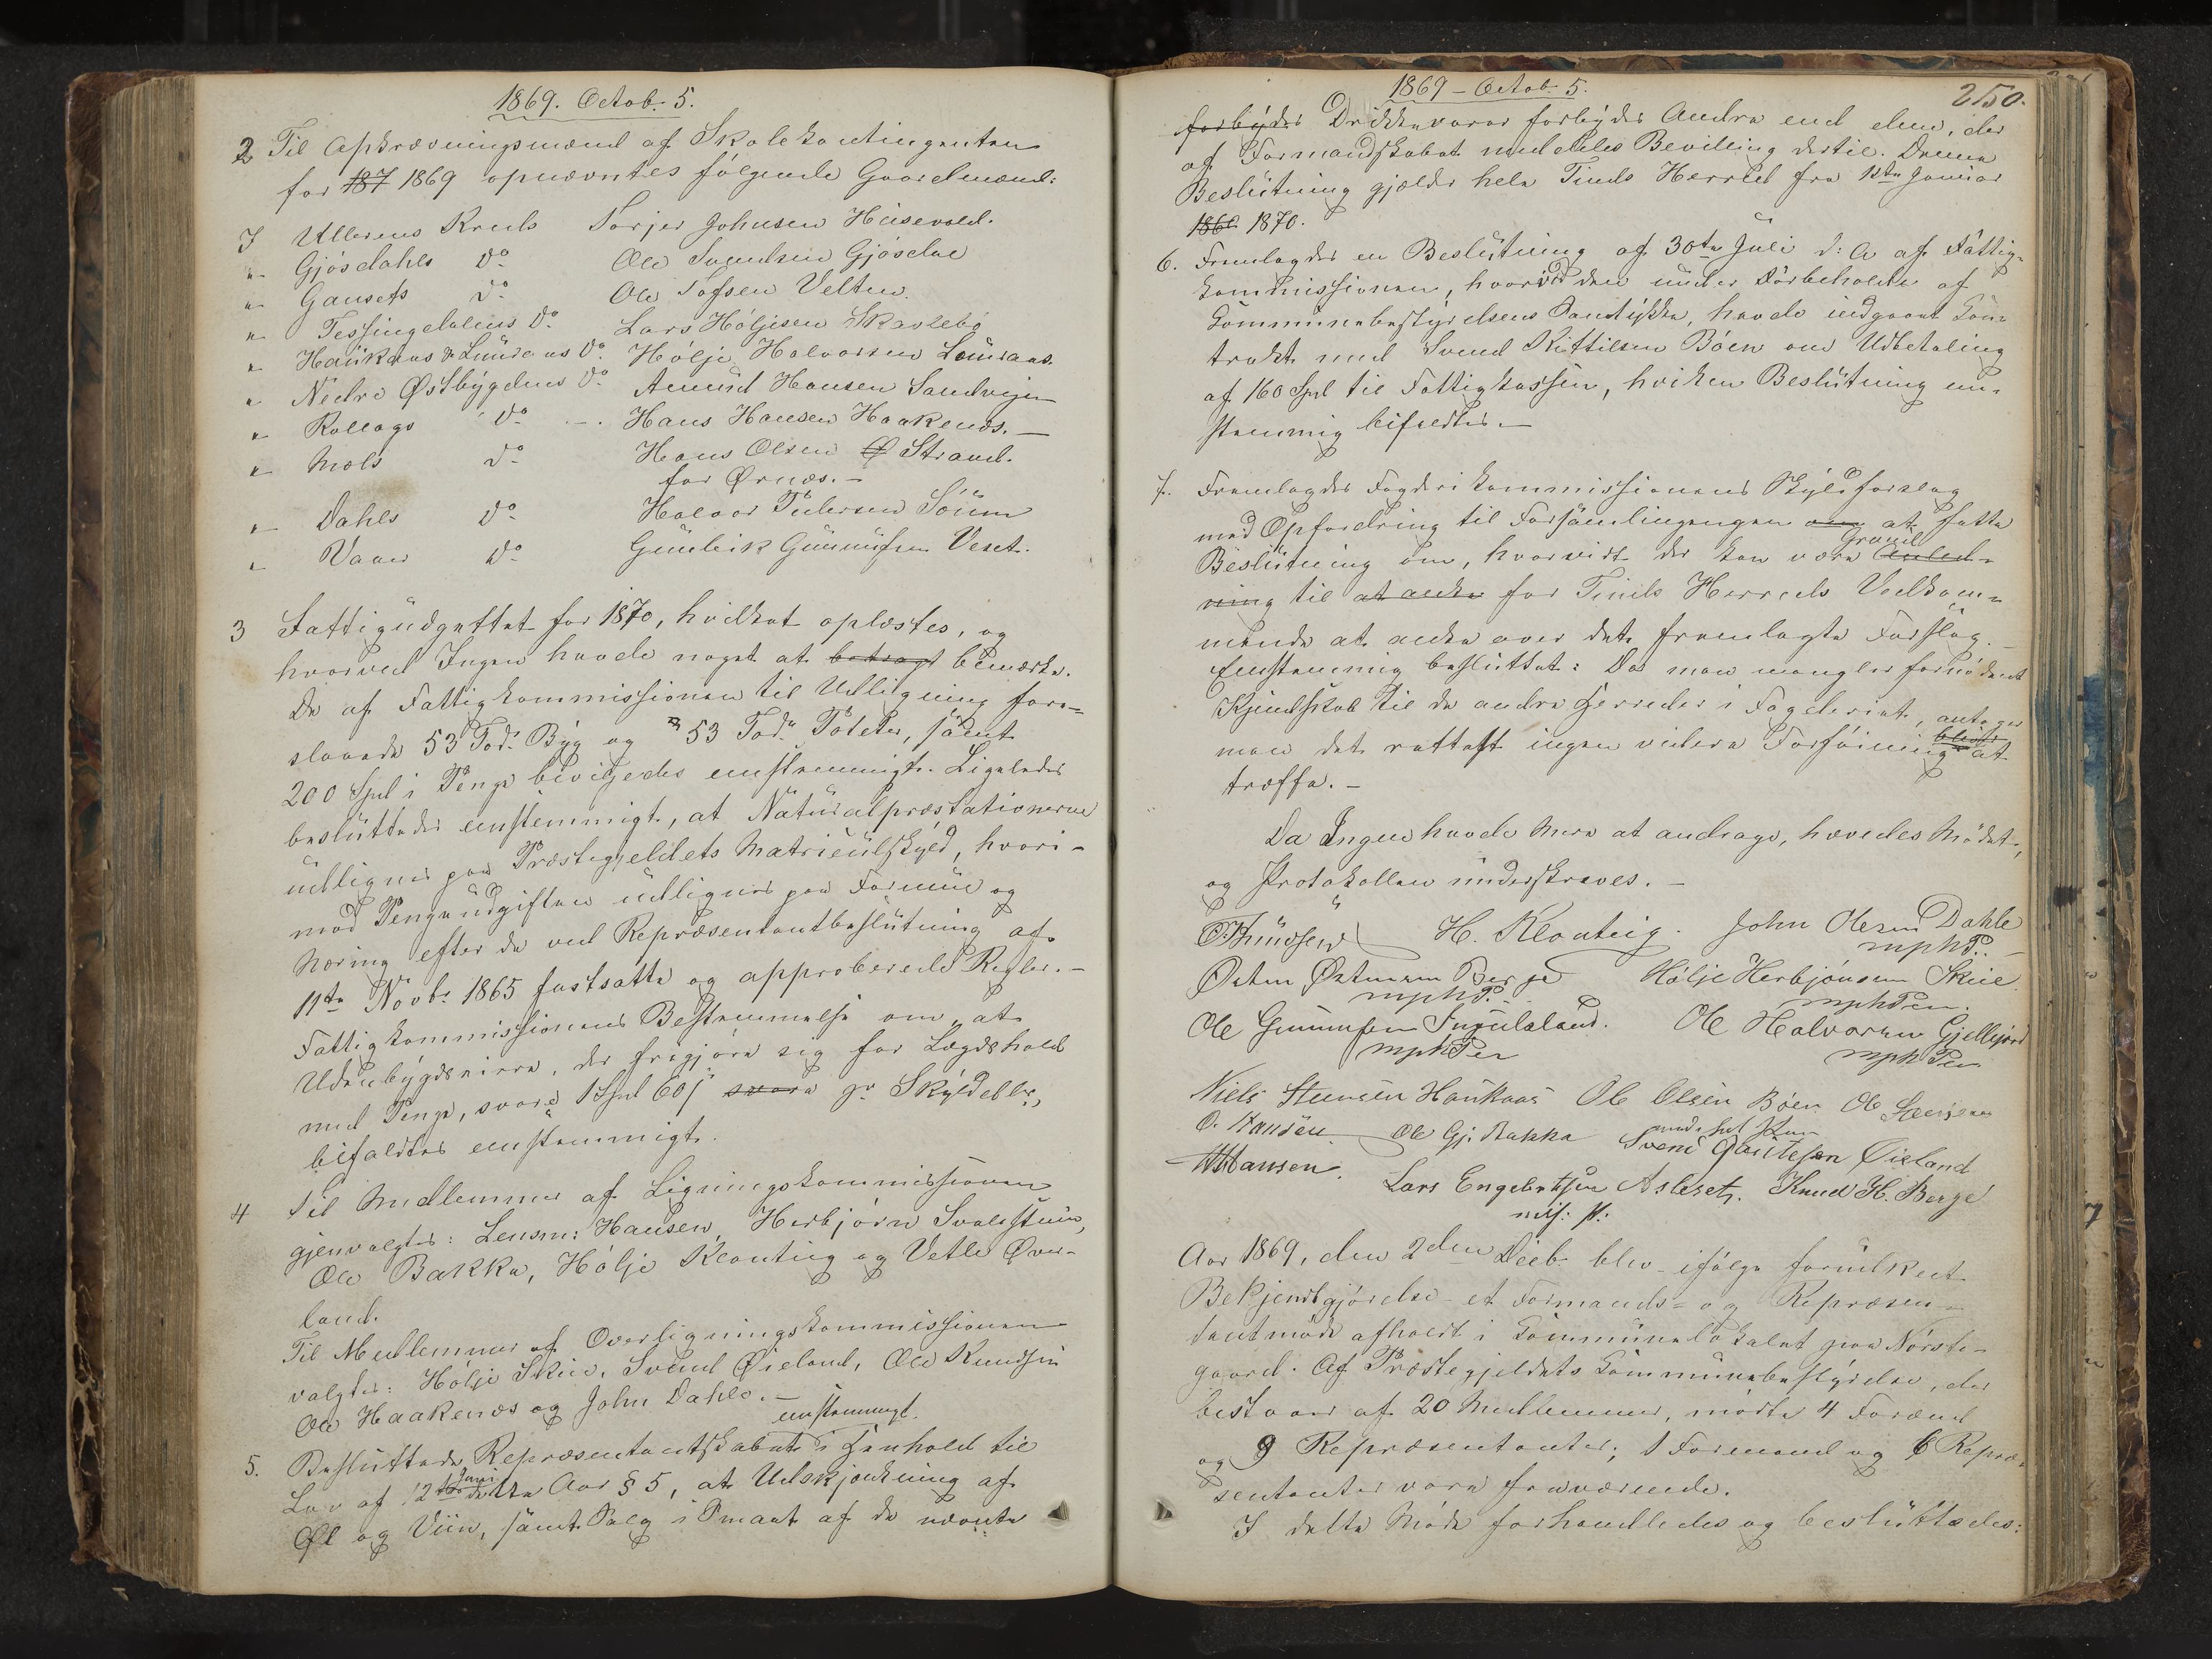 1869. Octob. 5.
2 Til Opkrævningsmænd af Skolekontingenten
for 187 1869 opnævntes følgende Gaardmænd:
I Ullerens Kreds Torjer Johnsen Husevold.
" Gjøsdahls Do Ole Svendsen Gjøsdal
" Gausets Do Ole Tofsen Velten.
" Tessingdalens Do Lars Høljesen Skarlebø
" Haukaas & Luuraas Do Hølje Halvorsen Luuraas.
" Nedre Østbygdens Do Amund Hansen Sandvigen
" Rollags Do Hans Hansen Haakenæs. —
" Mæls Do Hans Olsen Ø Strand.
for Ørnæs. —
" Dahls Do Halvor Pedersen Søum
" Vaaer Do Gunleik Gunnufsen Veset.
3 Fattigbudgettet for 1870, hvilket oplæstes, og
hvorved Ingen havde noget at betragt bemærke.
De af Fattigkommissionen til Udligning fore-
slaaede 53 Tdr Byg og 53 Tdr Poteter, samt
200 Spd i Penge bevilgedes enstemmigt. Ligeledes
besluttedes enstemmigt, at Naturalpræstationerne
udlignes paa Præstegjeldets Matriculskyld, hvori-
mod Pengeudgiften udlignes paa Formue og
Næring efter de ved Repræsentantbeslutning af
11te Novbr 1865 fastsatte og approberede Regler. —
Fattigkommissionens Bestemmelse om, at
Udenbygdseiere, der frigjøre sig for Lægdshold
med Penge, svare 1 Spd 60 ß svare pr Skylddlr.,
bifaldtes enstemmigt.
4 Til Medlemmer af Ligningskommissionen
gjenvalgtes: Lensm: Hansen, Herbjørn Svalestuen,
Ole Bakka, Hølje Klonteig og Vetle Øver-
land.
Til Medlemmer af Overligningskommissionen
valgtes: Hølje Skeie, Svend Øieland, Ole Knudsen
Ole Haakenæs og John Dahle. —
enstemmigt.
5. Besluttede Repræsentantskabet i Henhold til
Lov af 12te Juni dette Aar § 5, at Udskjænkning af
Øl og Viin, samt Salg i Smaat af de nævnte
1869 — Octob. 5.
250.
forbydes Drikkevarer forbydes Andre end dem, der
af Formandskabet meddeles Bevilling dertil. Denne
Beslutning gjælder hele Tinds Herred fra 1ste Januar
1860 1870.
6. Fremlagdes en Beslutning af 30te Juli d: A af Fattig-
kommissionen, hvorved den under Forbehold af
Kommunebestyrelsens Samtykke, havde indgaaet Kon-
trakt med Svend Kittilsen Bøen om Udbetaling
af 160 Spd til Fattigkassen, hvilken Beslutning en-
stemmig bifaldtes. —
7. Fremlagdes Fogderikommissionens Skyldforslag
med Opfordring til Forsamlingen om at fatte
Beslutning om, hvorvidt der kan være Anled- Grund
ning til at anke for Tinds Herreds Vedkom-
mende at anke over det fremlagte Forslag. —
Enstemmig besluttet: Da man mangler fornødent
Kjendskab til de andre Herreder i Fogderiet, antager
man det rettest ingen videre Forføining blive at
træffe. —
Da Ingen havde mere at andrage, hævedes Mødet,
og Protokollen underskreves. —
O. Knudsen H. Klonteig. John Olesen Dahle
mphP.
Østen Østensen Berge Hølje Herbjønsen Skeie.
mphP. mphPen.
Ole Gunnufsen Ingulsland. Ole Halvorsen Gjellesjord
mphPen mphPen
Niels Steensen Haukaas Ole Olsen Bøen Ole
O. Hansen Ole Gj. Bakka Svend Gautesen Øieland
med ført Pen
Hansen. Lars Engebretsen Asleset. Knud H. Berge
m: f: P:
Aar 1869, den 2den Decb. blev ifølge forudskeet
Bekjendtgjørelse et Formands- og Repræsen-
tantmøde afholdt i Kommunelokalet paa Nørste-
gaard. Af Præstegjeldets Kommunebestyrelse, der
bestaar af 20 Medlemmer, mødte 4 Formænd
og 9 Repræsentanter; 1 Formand og 6 Repræ-
sentanter vare fraværende.
I dette Møde forhandledes og besluttedes: